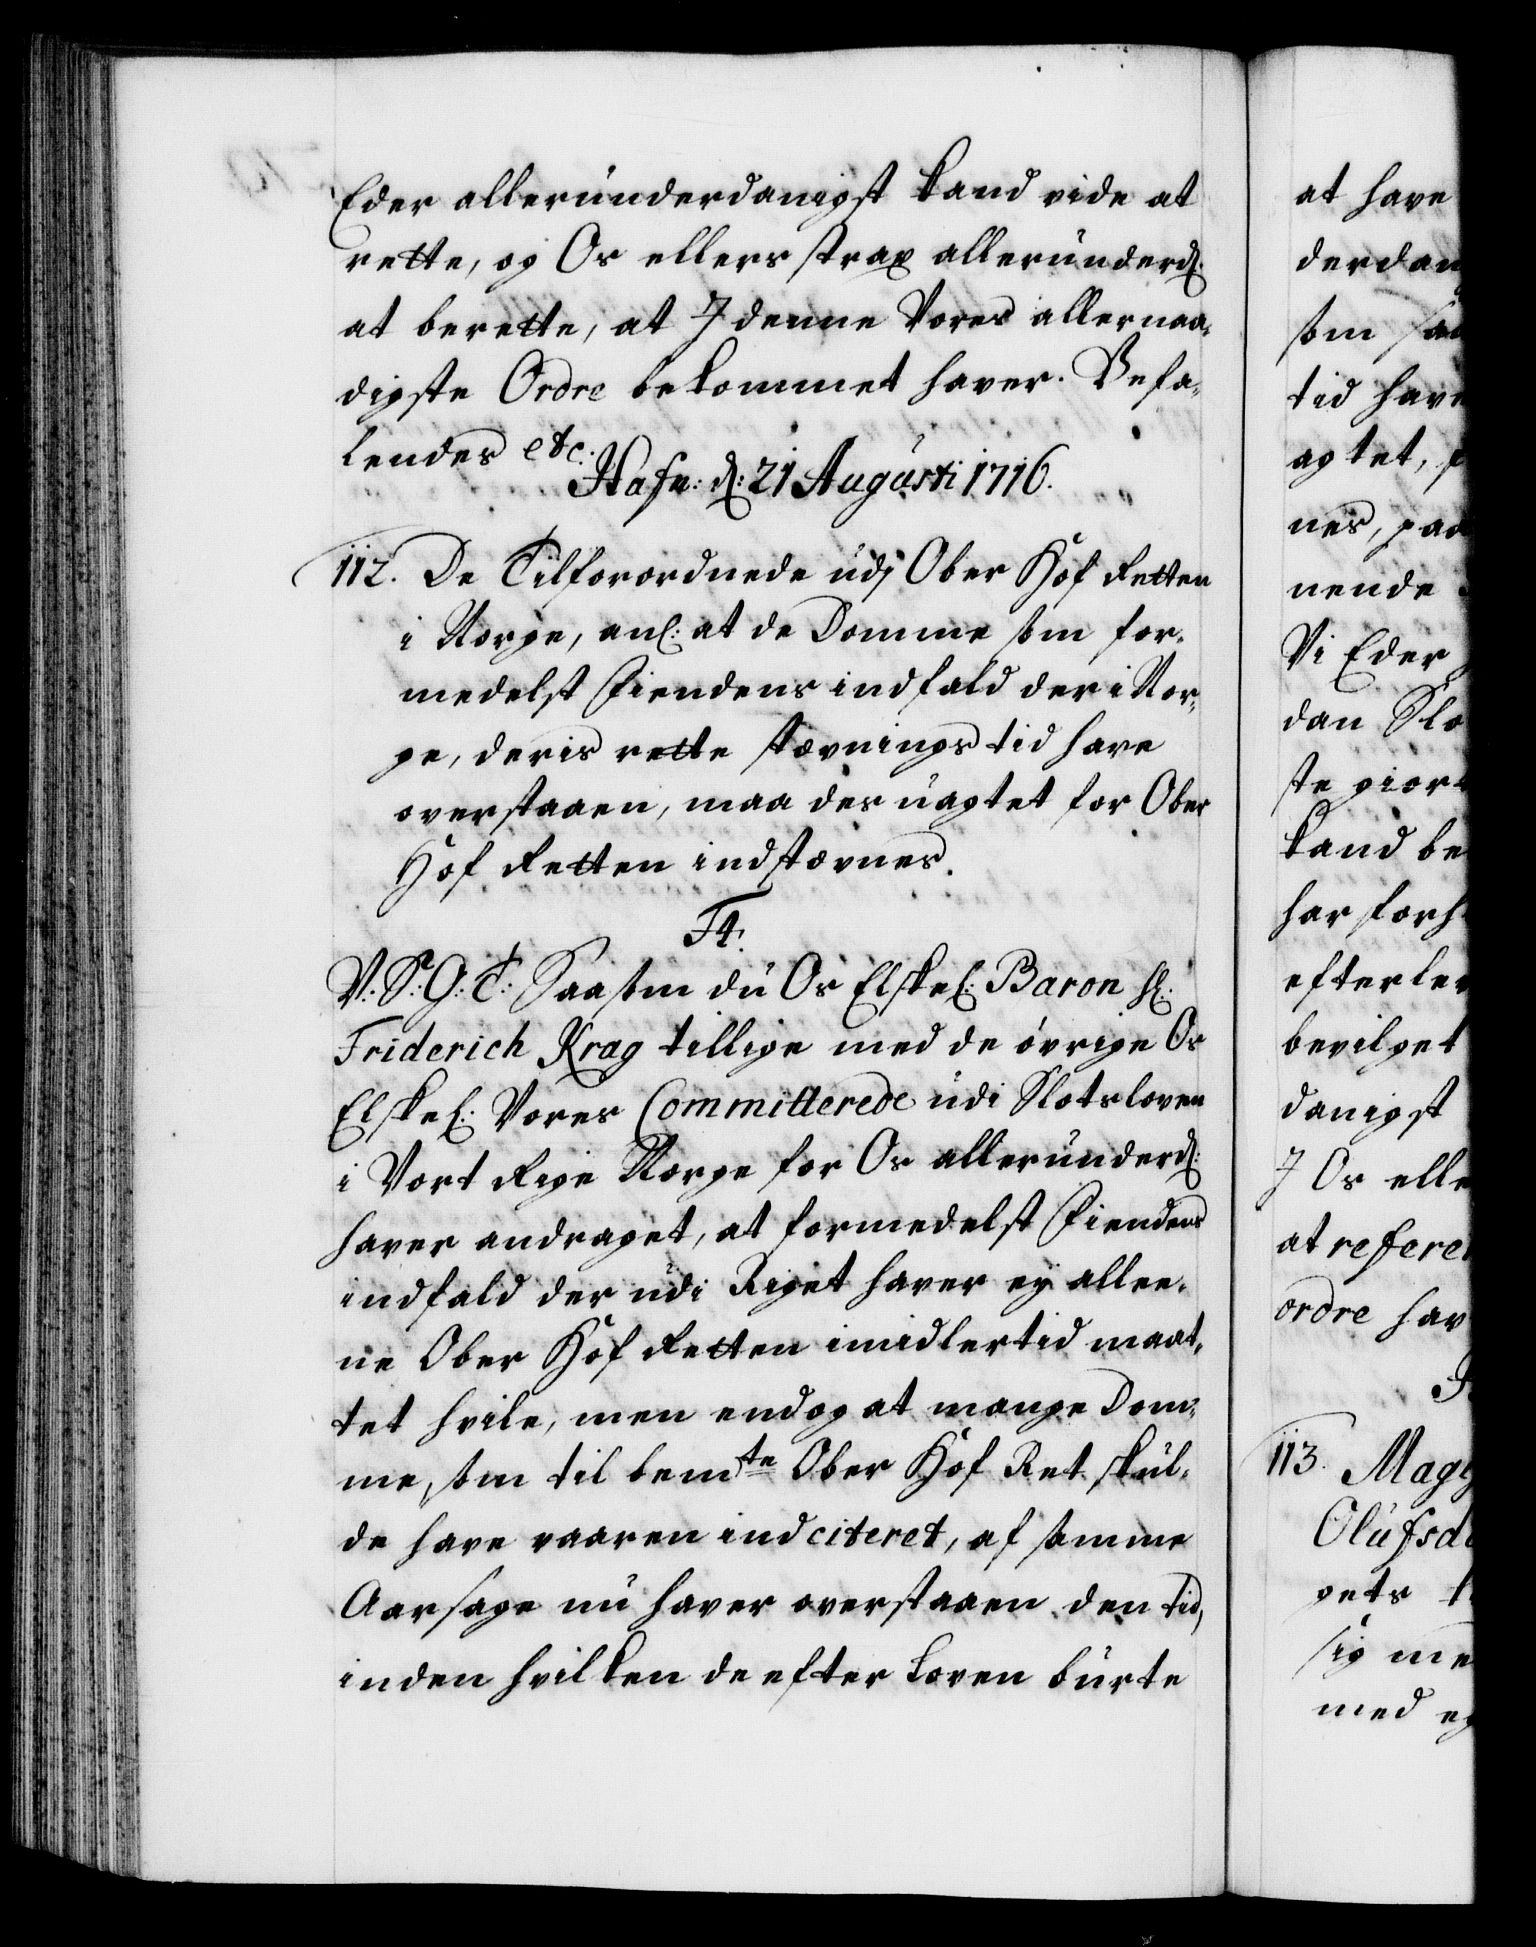 Eder allerunderdanigst kand vide at
rette, og Os ellers strax allerunderd:
at berette, at I denne Vores allernaa-
digste Ordre bekommet haver. Befa-
lendes etc.
Hafn: d: 21 Augusti 1716.
112. De Tilforordnede udj Ober Hof Retten
i Norge, anl: at de Domme som for-
medelst Fiendens indfald der i Nor-
ge, deris rette stævnings tid have
overstaaen, maa des uagtet for Ober
Hof Retten indstævnes.
F4.
V: S: G: T: Saasom du Os Elskel: Baron H:
Friderich Krag tillige med de øvrige Os
Elskel: Vores Committerede udi Slotsloven
i Vort Rige Norge for Os allerunderd:
haver andraget, at formedelst Fiendens
indfald der udi Riget haver ey allee-
ne Ober Hof Retten imidlertid maat-
tet hvile, men endog at mange Dom-
me, som til bemte Ober Hof Ret skul-
de have vaaren indciteret, af samme
Aarsage nu haver overstaaen den tid,
inden hvilken de efter Loven burte
at have
derdan
som
tid have
agtet,
nes, paa
nende
Vi Eder
dan
ste giort
kand be
har forh
efterlev
bevilget
danigst
I Os elle
at refere
ordre hav
113. Mag
Olufsd
gets
sig me
med